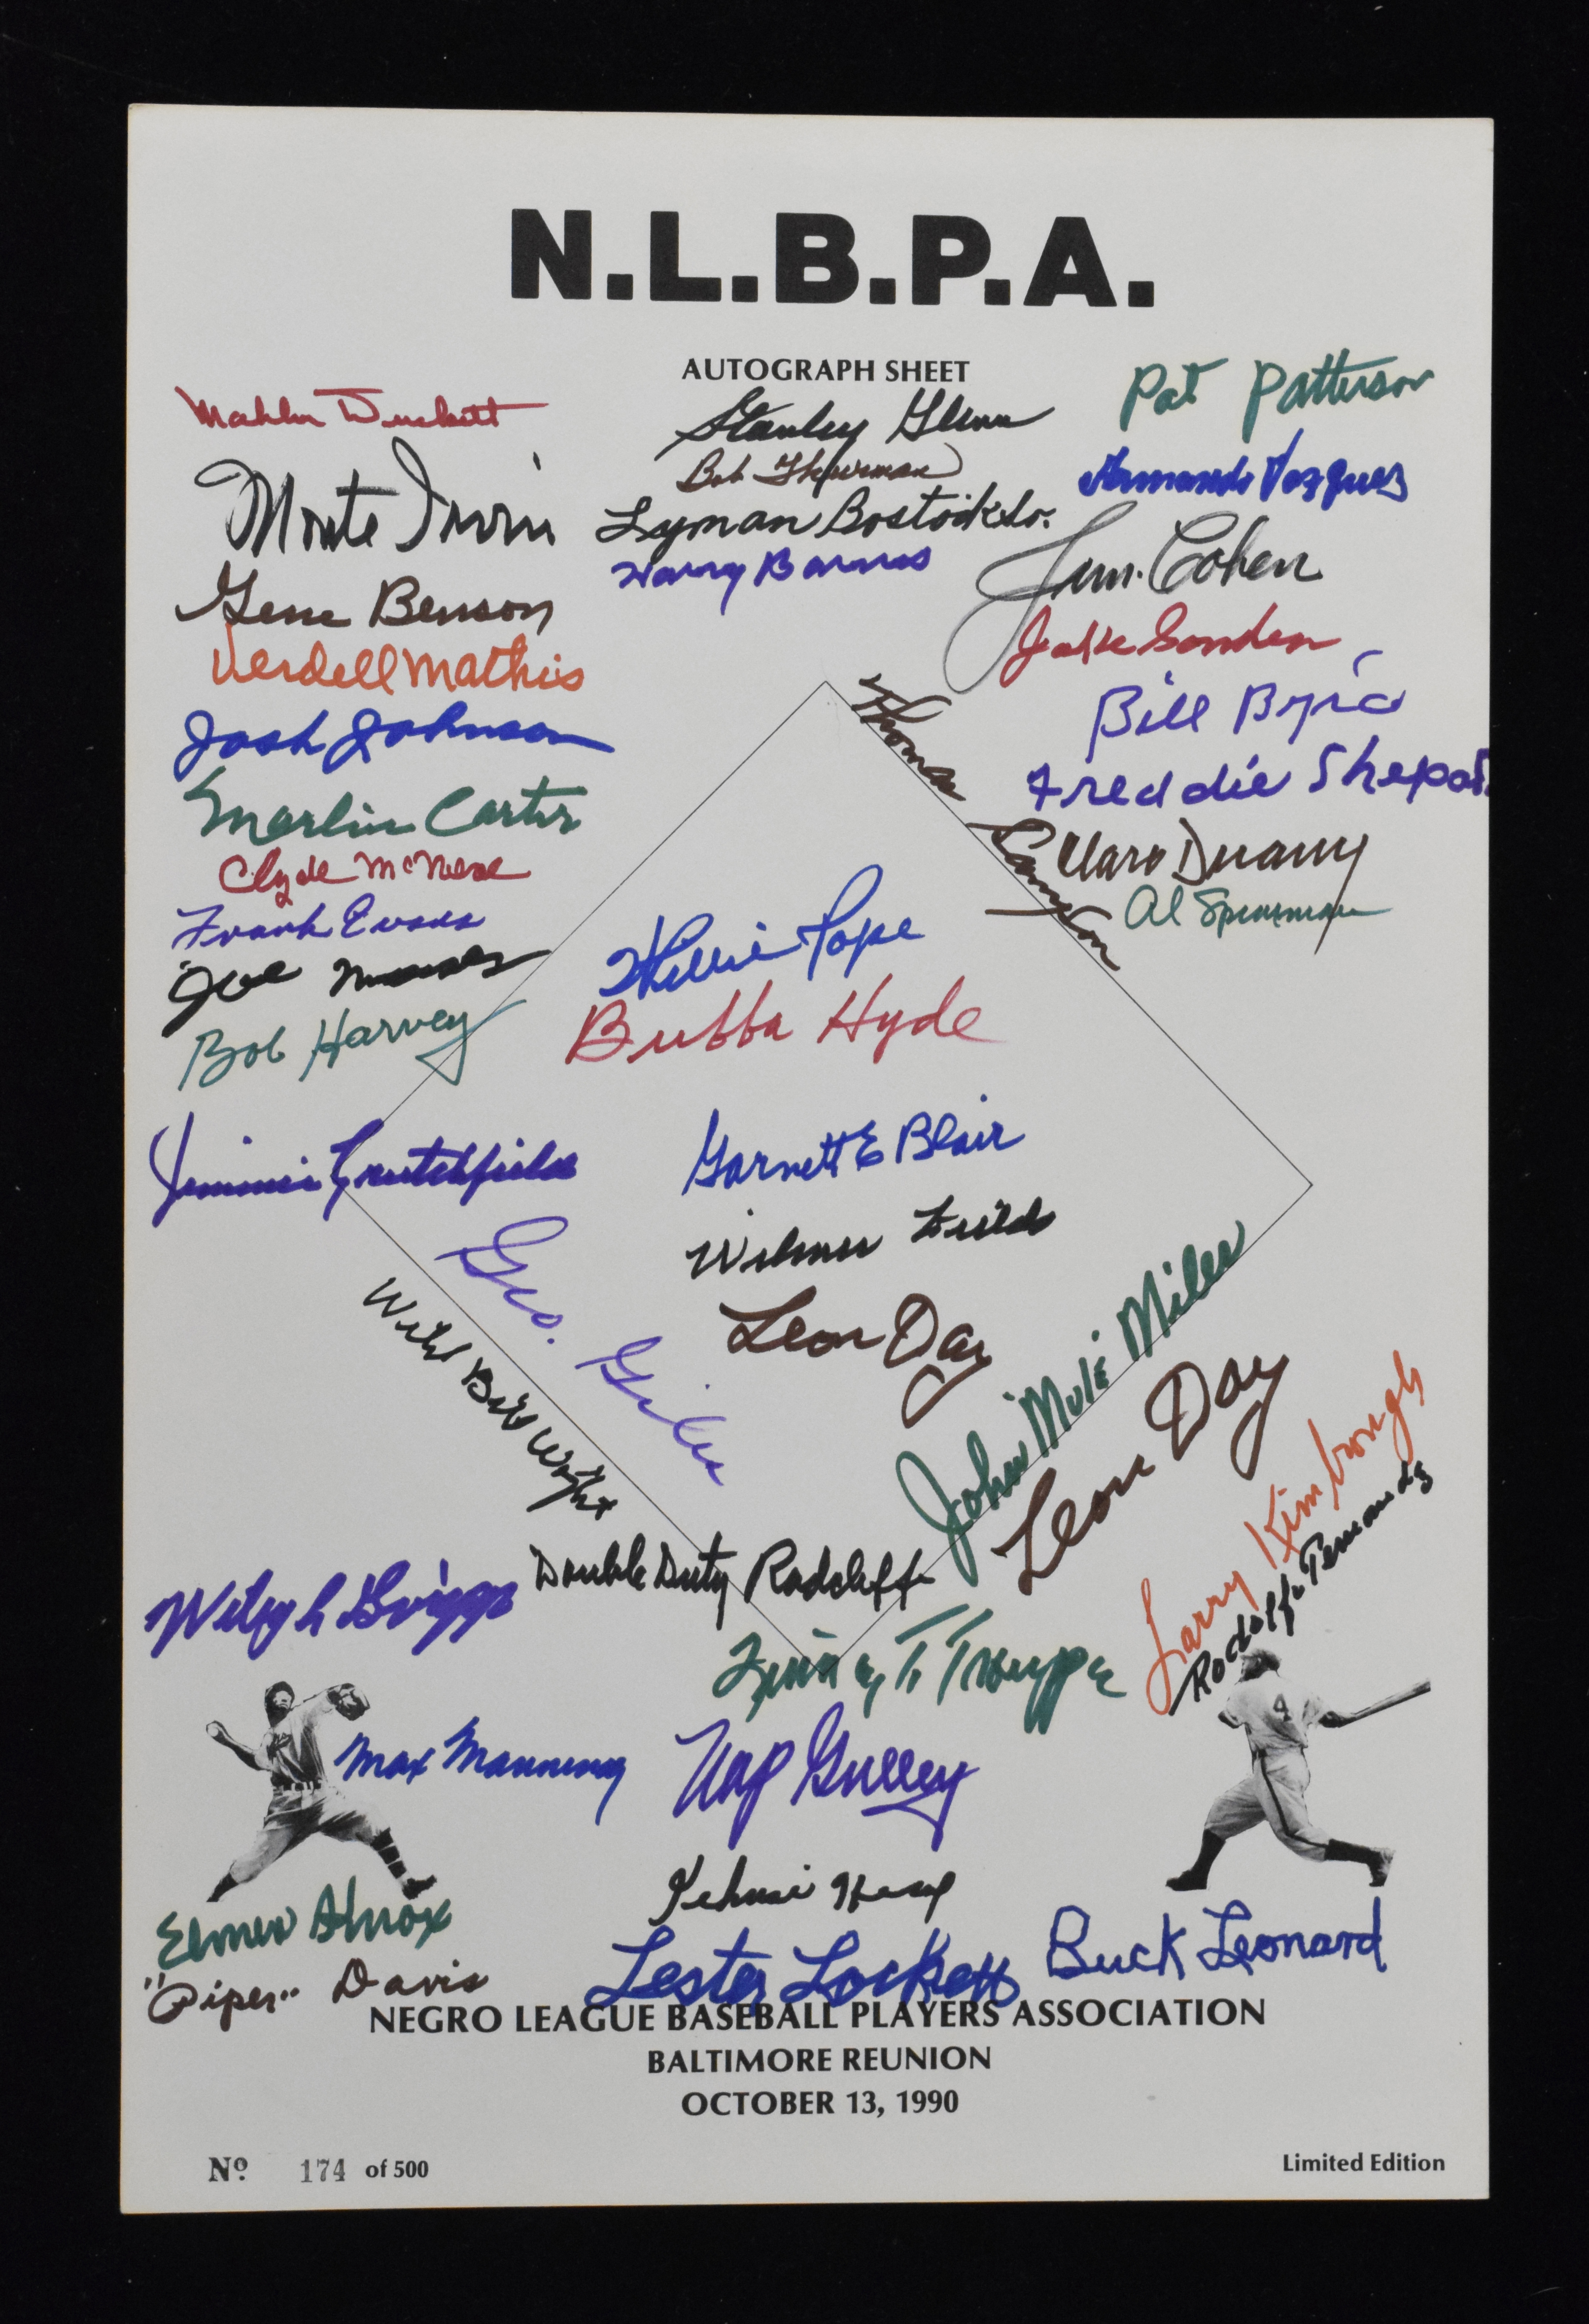 N.L.B.P.A.
AUTOGRAPH SHEET
Mahlon Duckett
Monte Irvin
Gene Benson
Verdell Mathis
Josh Johnson
Marlin Carter
Clyde McNeal
Frank Evans
Joe
Bob Harvey
Jimmie Crutchfield
Stanley Glenn
Bob Thurman
Lyman Bostock Sr.
Harry Barnes
Pat Patterson
Armando Vazquez
Jim Cohen
Bill Byrd
Freddie Shepar
Claro Duany
Al Spearman
Thomas Sampson
Willie Pope
Bubba Hyde
Garnett E Blair
Wilmer Fields
Leon Day
Geo. Giles
Wild Bill Wright
John Mule Miles
Leon Day
Larry Kimbrough
Rodolfo Fernandz
Double Duty Radcliffe
Wilmer Griggs
Quincy T Trouppe
Max Manning
Nap Gulley
Elmer Knox
"Piper" Davis
Lester Lockett
Buck Leonard
NEGRO LEAGUE BASEBALL PLAYERS ASSOCIATION
BALTIMORE REUNION
OCTOBER 13, 1990
4
Nº. 174 of 500
Limited Edition